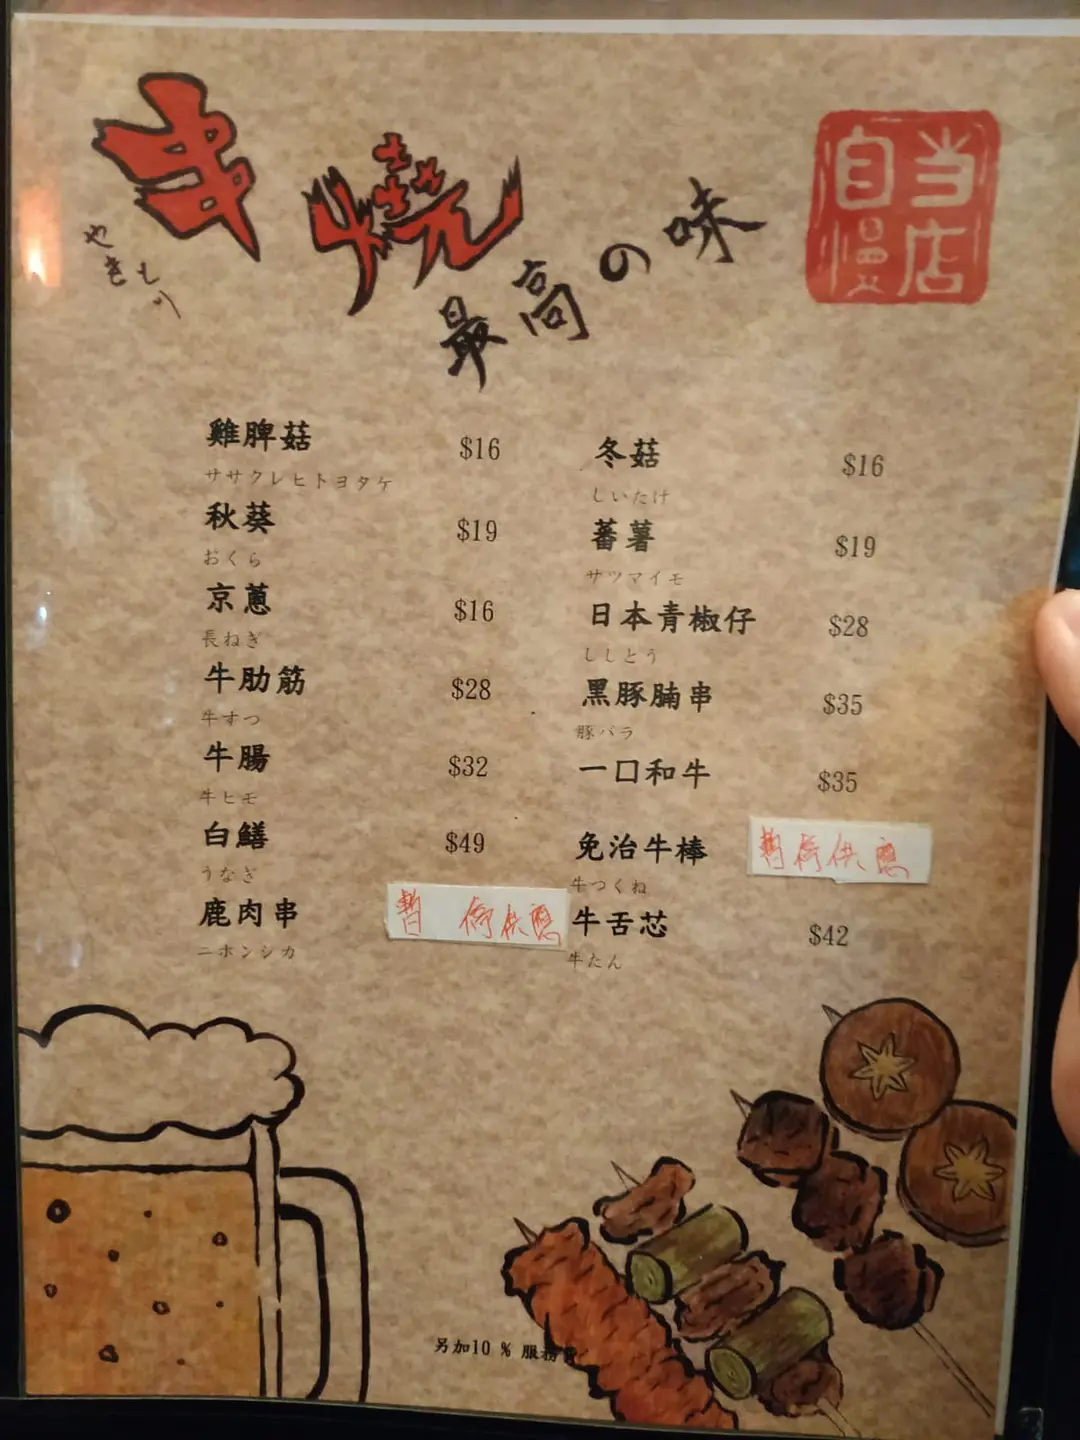 串燒
やきもり
最高の味
当店
自慢
雞脾菇 $16
ササクレヒトヨタケ
秋葵 $19
おくら
京蔥 $16
長ねぎ
牛肋筋 $28
牛すつ
牛腸 $32
牛ヒモ
白鱔 $49
うなぎ
鹿肉串 暫停供應
ニホンシカ
冬菇 $16
しいたけ
蕃薯 $19
サツマイモ
日本青椒仔 $28
ししとう
黑豚腩串 $35
豚バラ
一口和牛 $35
免治牛棒 暫停供應
牛つくね
牛舌芯 $42
牛たん
另加10 % 服務費